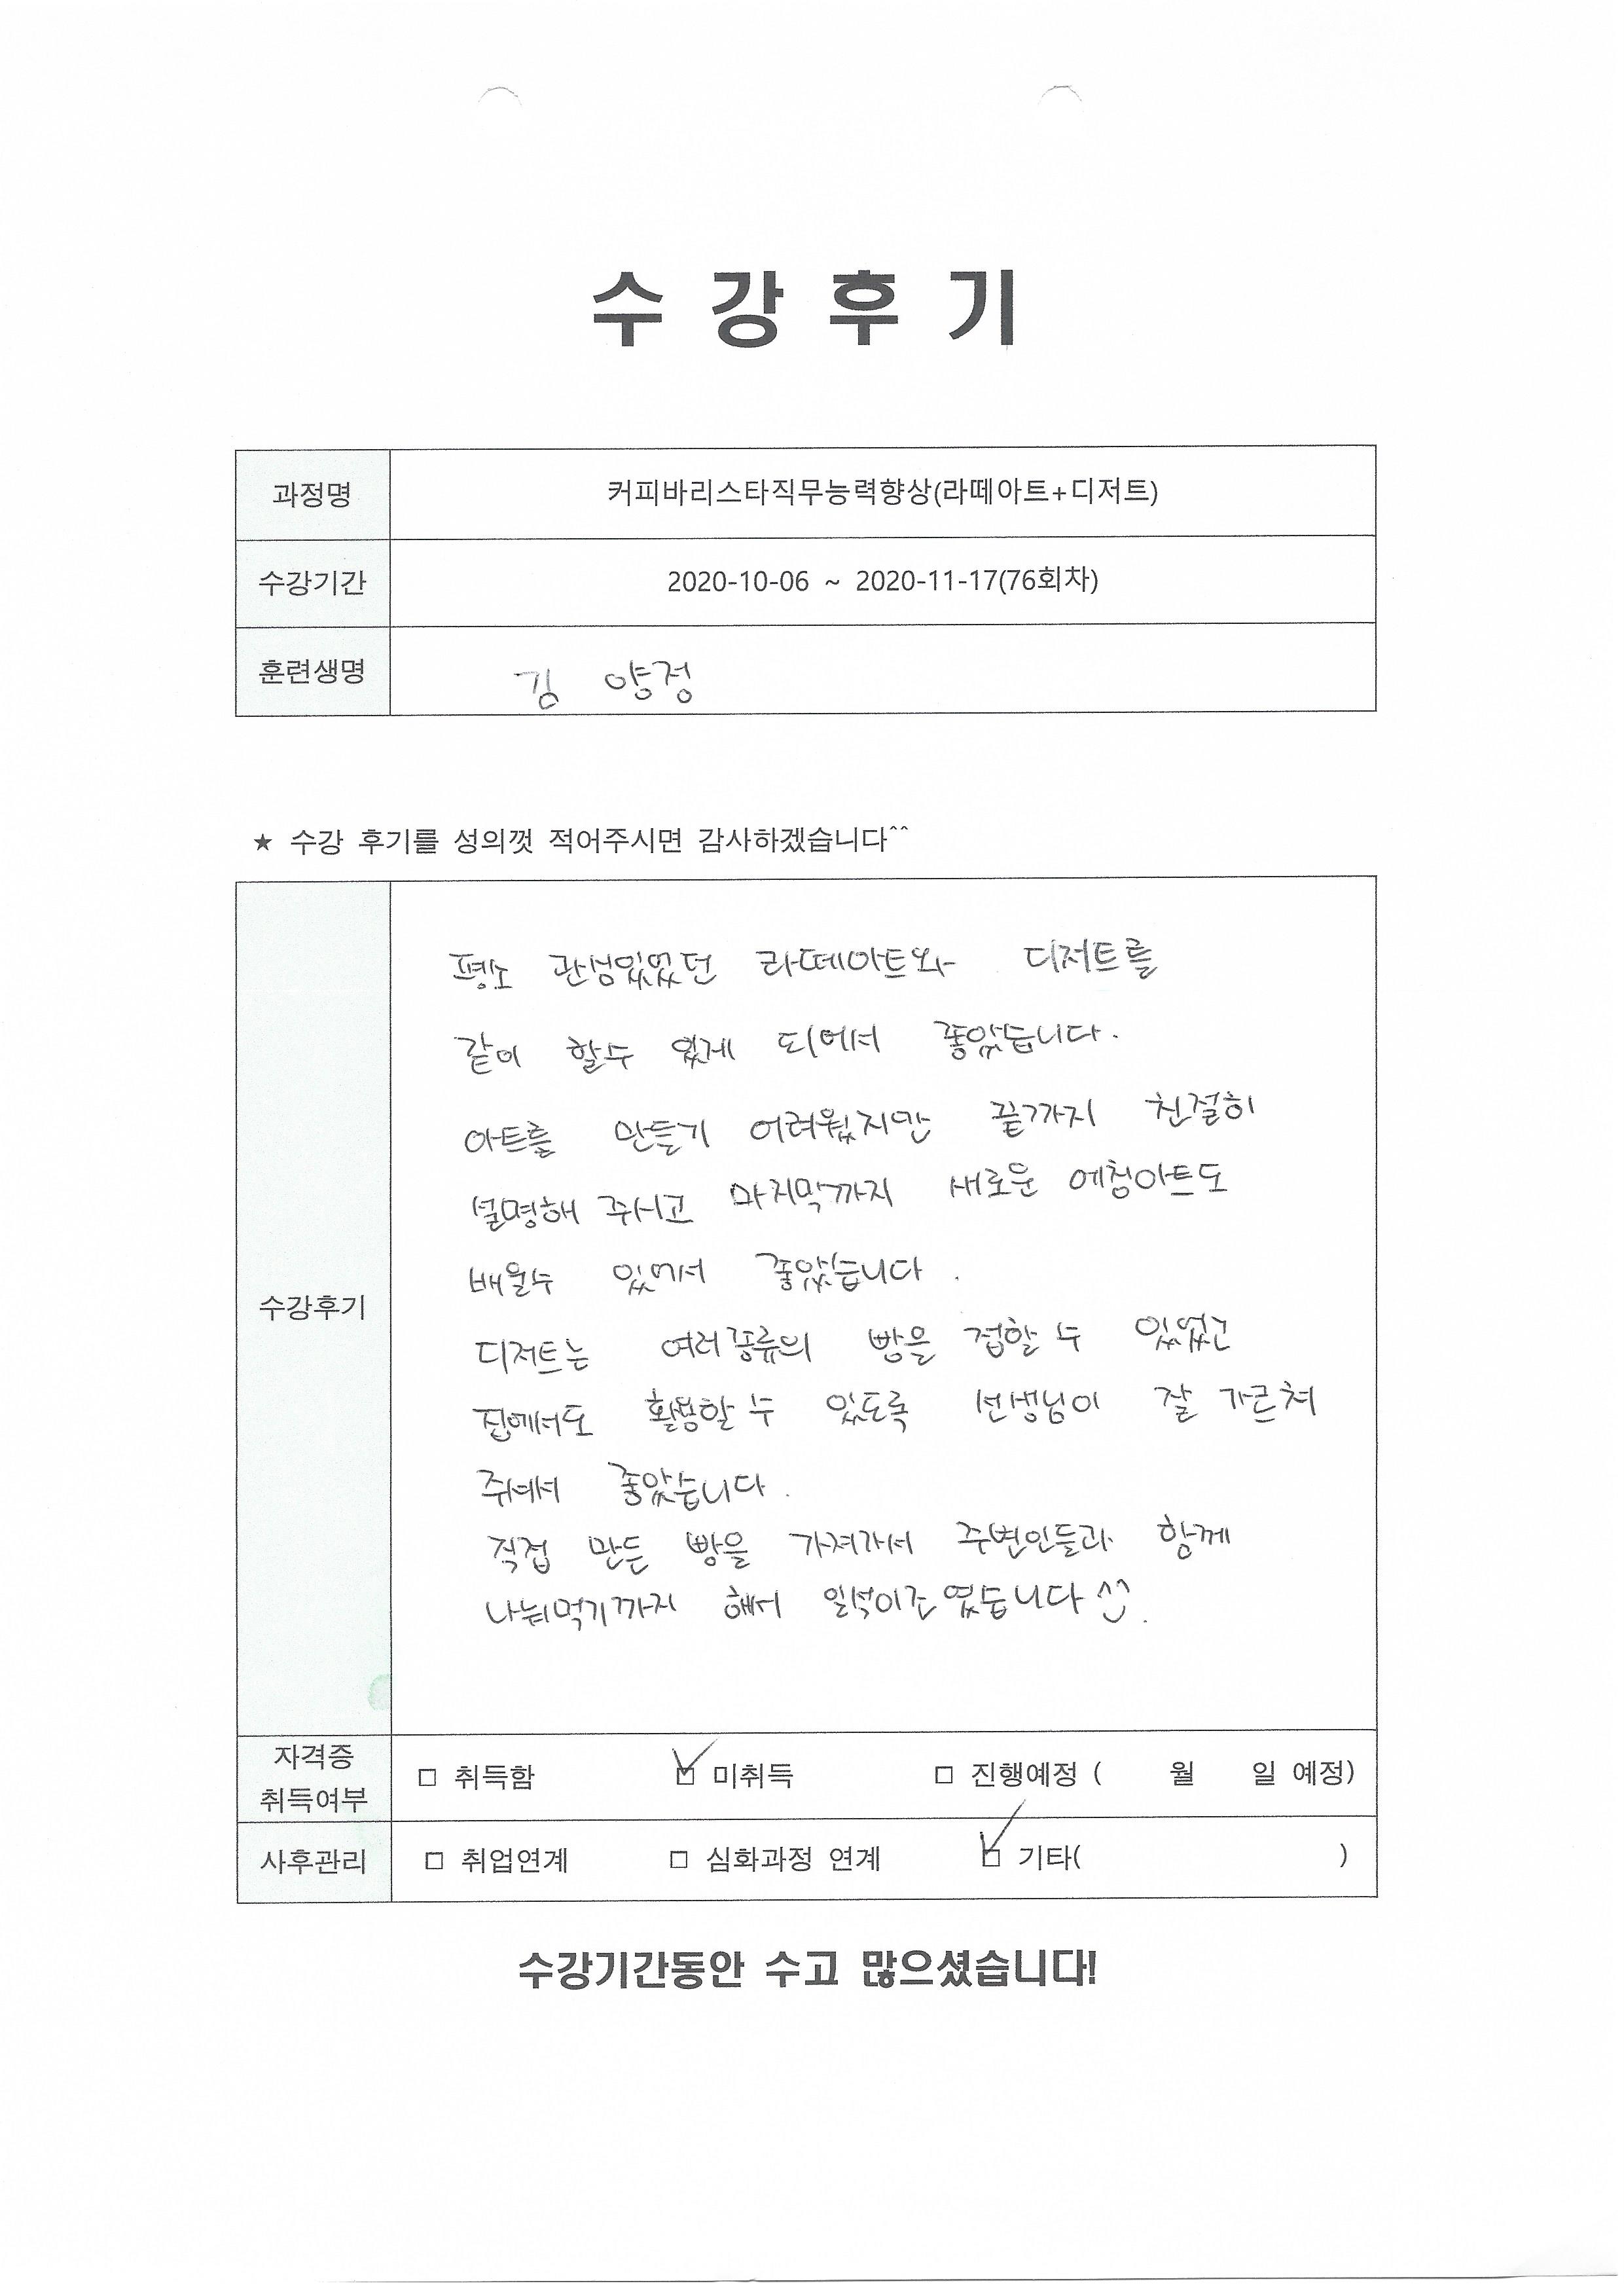 수강후기
과정명 커피바리스타직무능력향상(라떼아트+디저트)
수강기간 2020-10-06 ~ 2020-11-17(76회차)
훈련생명 김 양정
★ 수강 후기를 성의껏 적어주시면 감사하겠습니다^^
평소 관심있었던 라떼아트와 디저트를
같이 할수 있게 되어서 좋았습니다.
아트를 만들기 어려웠지만 끝까지 친절히
설명해 주시고 마지막까지 새로운 에칭아트도
배울수 있어서 좋았습니다.
디저트는 여러종류의 빵을 접할 수 있었고
수강후기
집에서도 활용할 수 있도록 선생님이 잘 가르쳐
주셔서 좋았습니다.
직접 만든 빵을 가져가서 주변인들과 함께
나눠먹기까지 해서 일석이조 였습니다^^.
자격증 취득여부 □ 취득함 □ 미취득 □ 진행예정 ( 월 일 예정)
사후관리 □ 취업연계 □ 심화과정 연계 □ 기타( )
수강기간동안 수고 많으셨습니다!